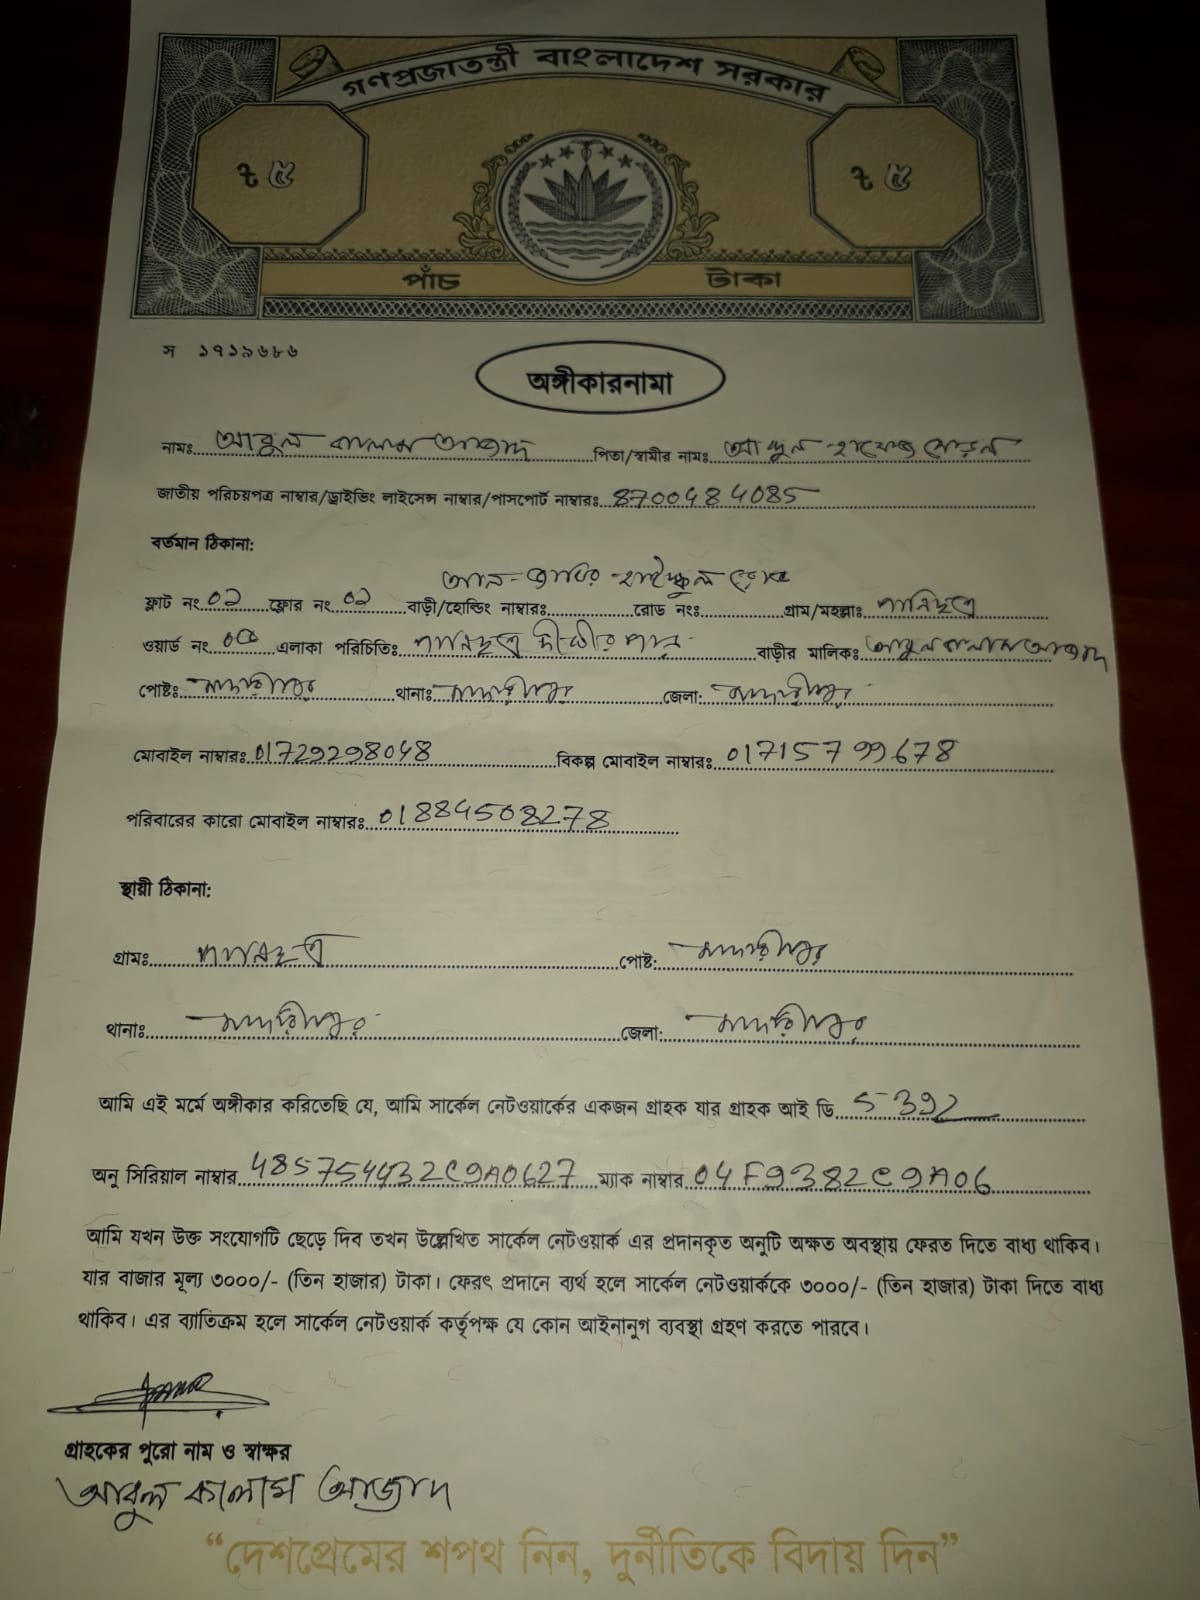 গণপ্রজাতন্ত্রী বাংলাদেশ সরকার
৳ ৫ ৳ ৫
পাঁচ টাকা
স ১৭১৯৬৮৬
অঙ্গীকারনামা
নামঃ আবুল কালাম আজাদ পিতা/স্বামীর নামঃ আব্দুল
জাতীয় পরিচয়পত্র নাম্বার/ড্রাইভিং লাইসেন্স নাম্বার/পাসপোর্ট নাম্বারঃ 8700484085
বর্তমান ঠিকানা:
আল-জাবির হাইস্কুল
ফ্লাট নং ০২ ফ্লোর নং ০২ বাড়ী/হোল্ডিং নাম্বারঃ রোড নংঃ গ্রাম/মহল্লাঃ পানিছত্র
ওয়ার্ড নং এলাকা পরিচিতিঃ পানিছত্র দীঘীর পাড় বাড়ীর মালিকঃ আবুল কালাম আজাদ
পোষ্টঃ মাদারীপুর থানাঃ মাদারীপুর জেলা: মাদারীপুর
মোবাইল নাম্বারঃ 01729298048 বিকল্প মোবাইল নাম্বারঃ 01715799678
পরিবারের কারো মোবাইল নাম্বারঃ 01884508278
স্থায়ী ঠিকানা:
গ্রামঃ পানিছত্র পোষ্ট: মাদারীপুর
থানাঃ মাদারীপুর জেলা: মাদারীপুর
আমি এই মর্মে অঙ্গীকার করিতেছি যে, আমি সার্কেল নেটওয়ার্কের একজন গ্রাহক যার গ্রাহক আই ডি S-392
অনু সিরিয়াল নাম্বার 485754432C9A0627 ম্যাক নাম্বার 04F9382C9A06
আমি যখন উক্ত সংযোগটি ছেড়ে দিব তখন উল্লেখিত সার্কেল নেটওয়ার্ক এর প্রদানকৃত অনুটি অক্ষত অবস্থায় ফেরত দিতে বাধ্য থাকিব।
যার বাজার মূল্য ৩০০০/- (তিন হাজার) টাকা। ফেরৎ প্রদানে ব্যর্থ হলে সার্কেল নেটওয়ার্ককে ৩০০০/- (তিন হাজার) টাকা দিতে বাধ্য
থাকিব। এর ব্যাতিক্রম হলে সার্কেল নেটওয়ার্ক কর্তৃপক্ষ যে কোন আইনানুগ ব্যবস্থা গ্রহণ করতে পারবে।
গ্রাহকের পুরো নাম ও স্বাক্ষর
আবুল কালাম আজাদ
“দেশপ্রেমের শপথ নিন, দুর্নীতিকে বিদায় দিন”